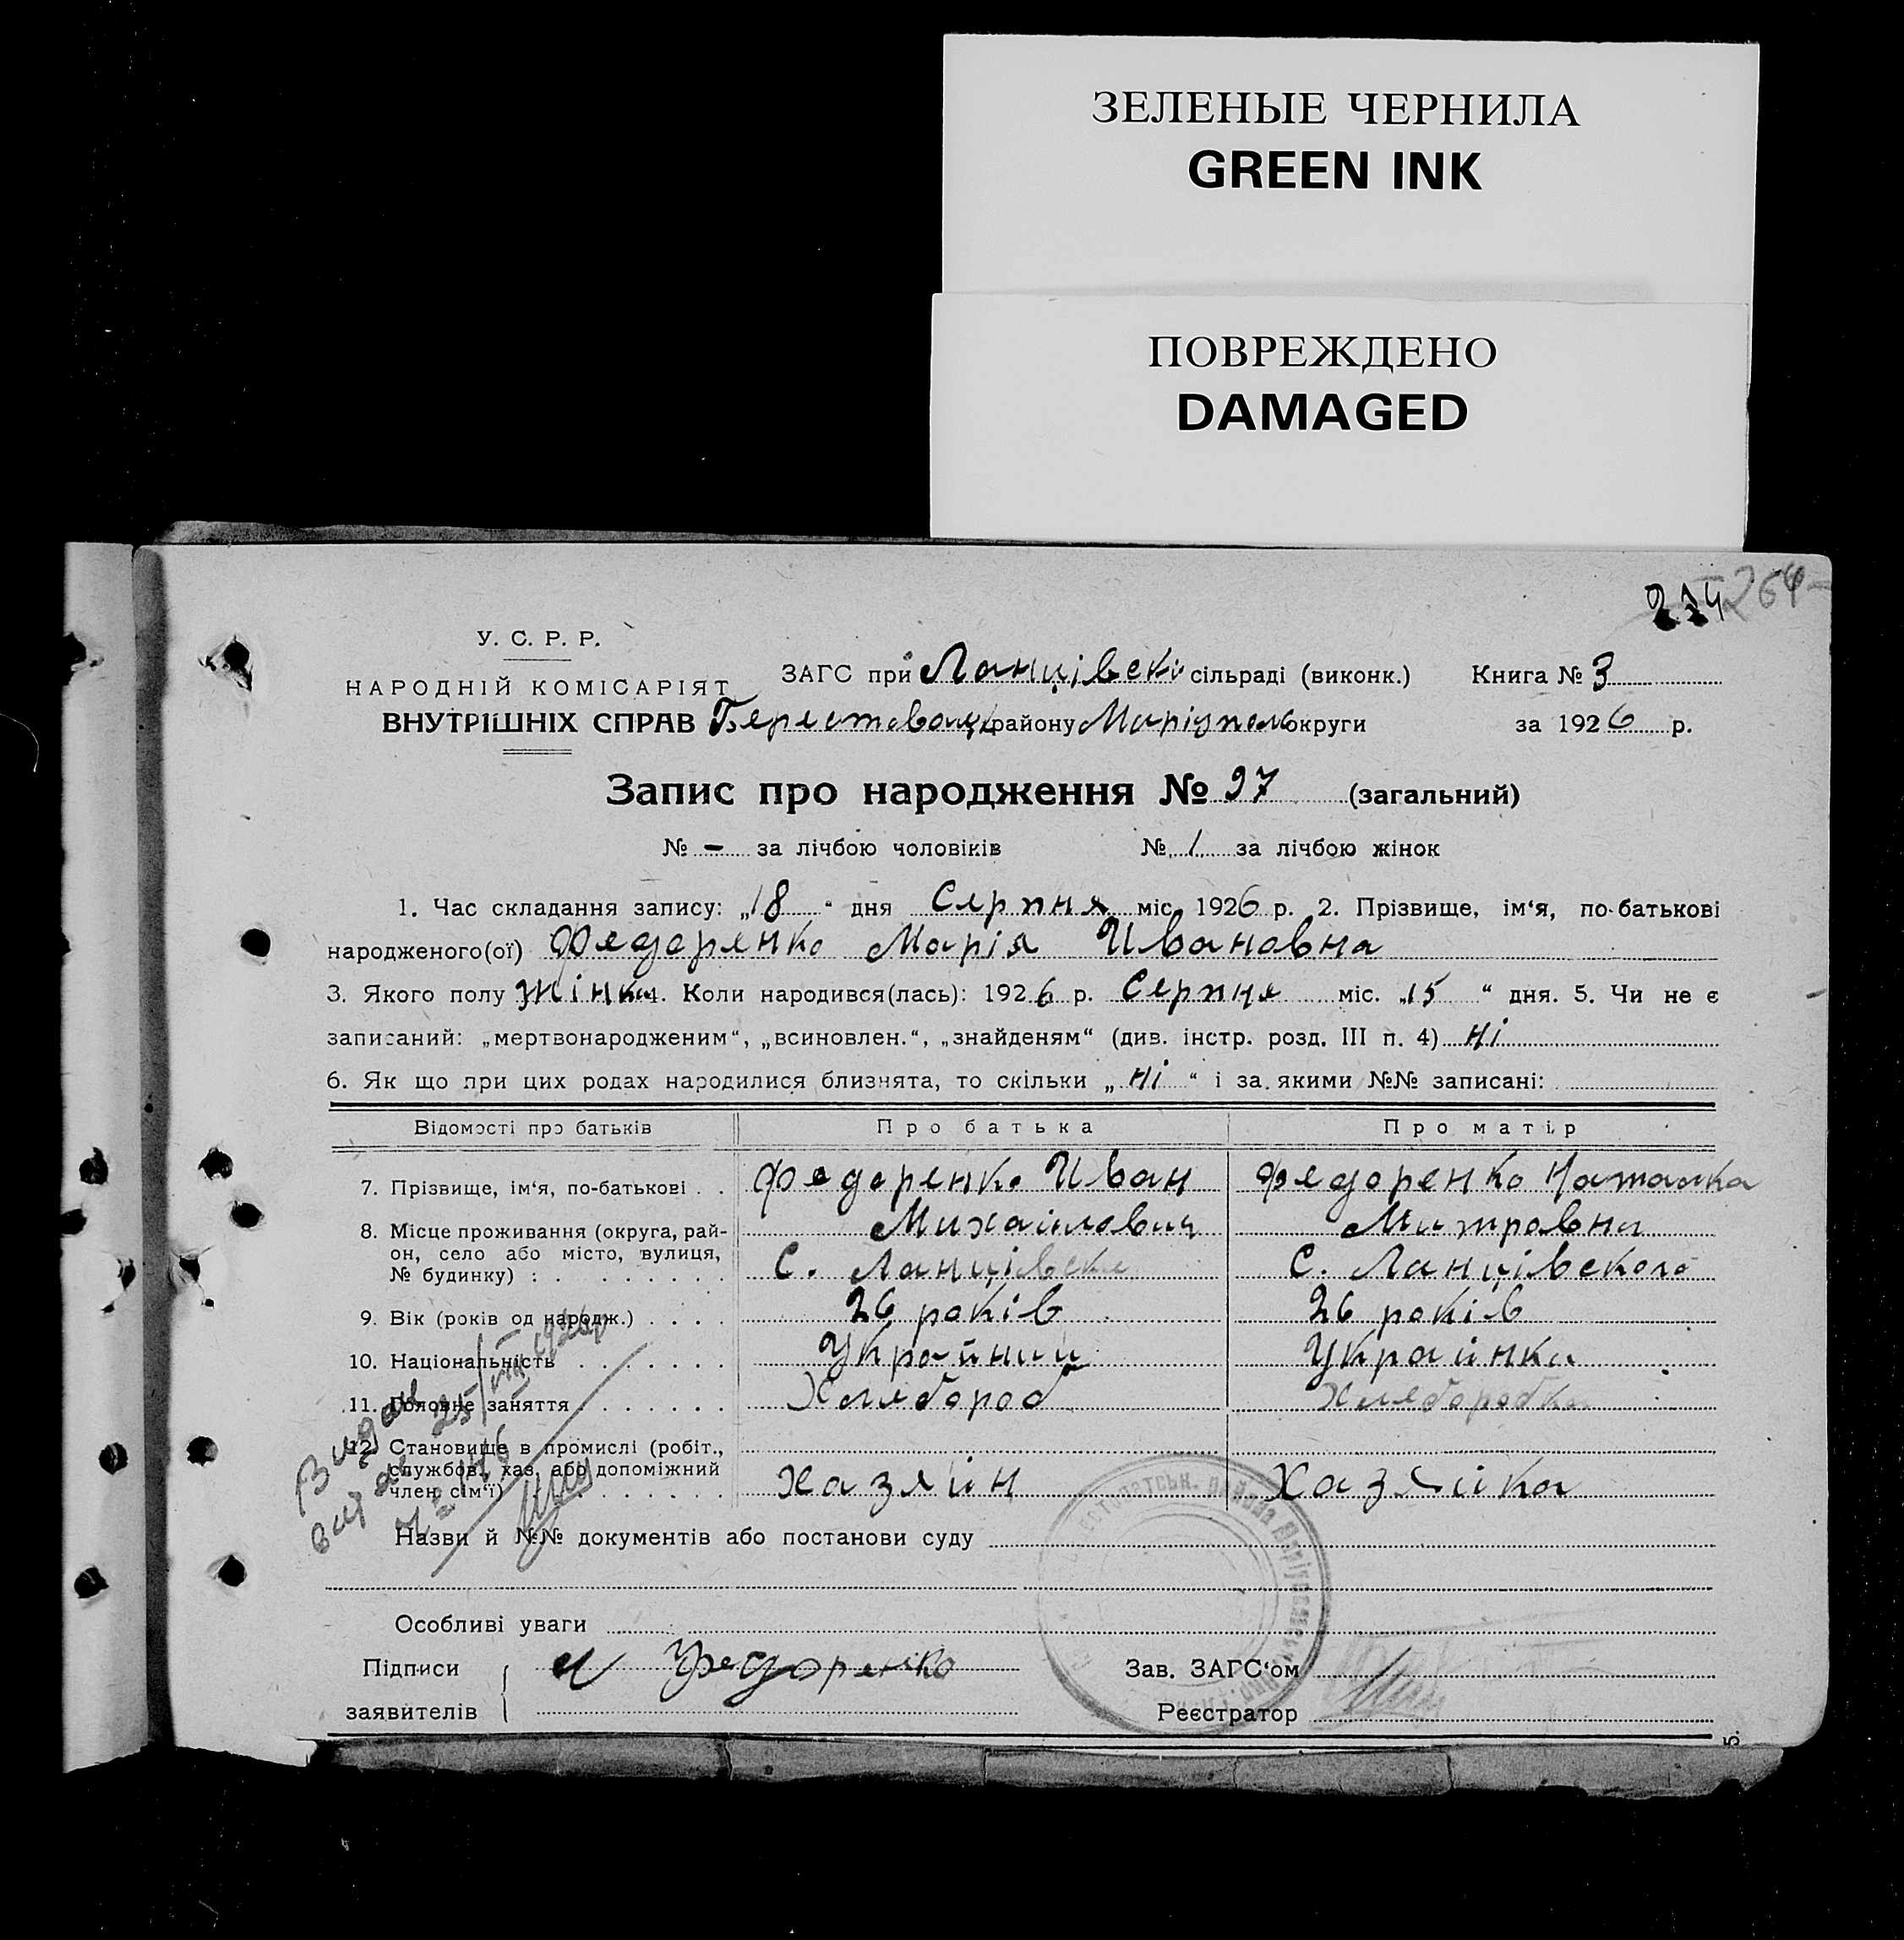 ЗЕЛЕНЫЕ ЧЕРНИЛА
GREEN INK
ПОВРЕЖДЕНО
DAMAGED
264
У. С. Р. Р.
НАРОДНІЙ КОМІСАРІЯТ
ВНУТРІШНІХ СПРАВ
ЗАГС при Ланцівскі сільраді (виконк.) Книга № 3
району Маріуполь округи за 1926 р.
Запис про народження № 97 (загальний)
№ – за лічбою чоловіків № 1 за лічбою жінок
1. Час складання запису: „18“ дня Серпня міс. 1926 р. 2. Прізвище, ім‘я, по-батькові
народженого(ої) Федоренко Марія Ивановна
3. Якого полу жінка 4. Коли народився(лась): 1926 р. Серпня міс. „15“ дня. 5. Чи не є
записаний: „мертвонародженим“, „всиновлен.“, „знайденям“ (див. інстр. розд. III п. 4) ні
6. Як що при цих родах народилися близнята, то скільки „ні“ і за якими №№ записані:
Відомості про батьків Про батька Про матір
7. Прізвище, ім‘я, по-батькові . . Федоренко Иван Федоренко Наталка
Михаілович Митровна
8. Місце проживання (округа, рай-
он, село або місто, вулиця,
№ будинку) : . С. Ланцівске С. Ланцівского
9. Вік (років од народж.) . . . . 26 років 26 років
10. Національність . . . . . . . Украйниц Украинка
11. Головне заняття . . . . . . Хлебороб Хлеборобка
12. Становище в промислі (робіт.,
службов., хаз. або допоміжний
член сім‘ї) . . . . . . . Хазяин Хазяйка
Видан
25/VIII 1926р
№ 146
Назви й №№ документів або постанови суду
Особливі уваги
Підписи
заявителів
Федоренко
Зав. ЗАГС‘ом
Реєстратор
5.